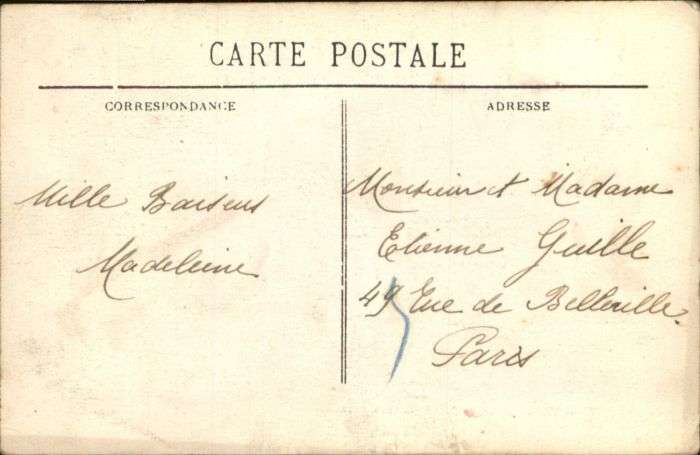 CARTE POSTALE
CORRESPONDANCE
ADRESSE
Mille Baisers
Madeleine
Monsieur & Madame
Etienne Guille
49 Rue de Belleville.
Paris